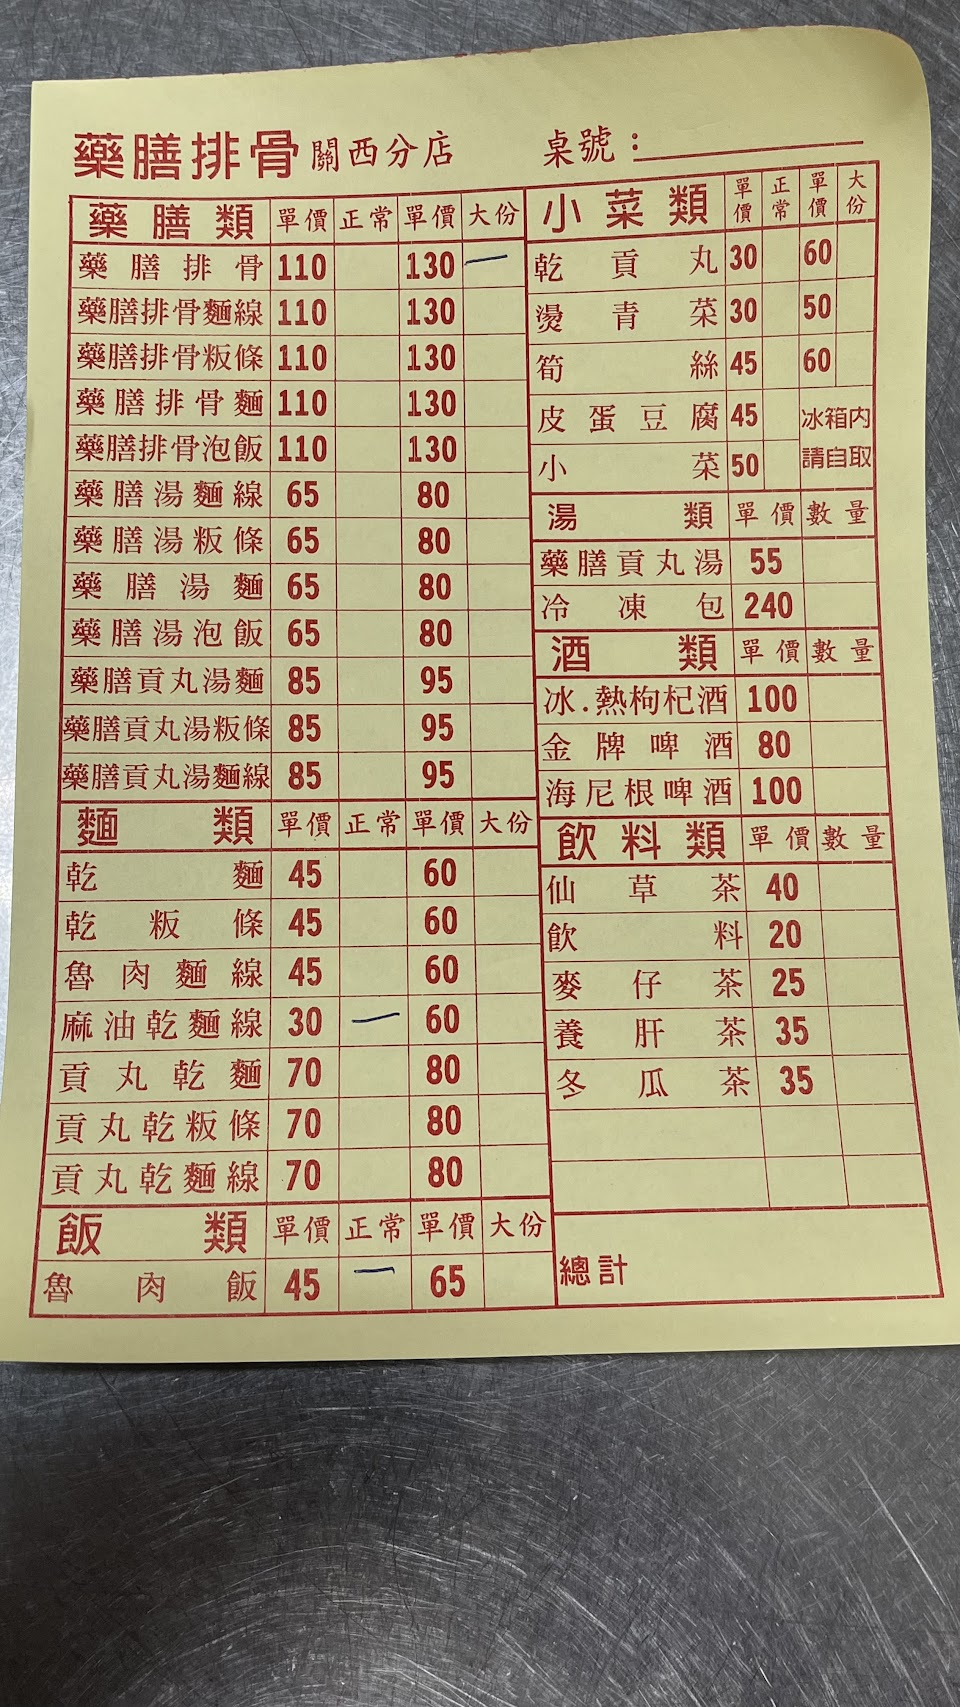 藥膳排骨 關西分店 桌號：
藥膳類 單價 正常 單價 大份
藥膳排骨 110 130 一
藥膳排骨麵線 110 130
藥膳排骨粄條 110 130
藥膳排骨麵 110 130
藥膳排骨泡飯 110 130
藥膳湯麵線 65 80
藥膳湯粄條 65 80
藥膳湯麵 65 80
藥膳湯泡飯 65 80
藥膳貢丸湯麵 85 95
藥膳貢丸湯粄條 85 95
藥膳貢丸湯麵線 85 95
麵類 單價 正常 單價 大份
乾麵 45 60
乾粄條 45 60
魯肉麵線 45 60
麻油乾麵線 30 一 60
貢丸乾麵 70 80
貢丸乾粄條 70 80
貢丸乾麵線 70 80
飯類 單價 正常 單價 大份
魯肉飯 45 一 65
小菜類 單價 正常 單價 大份
乾貢丸 30 60
燙青菜 30 50
筍絲 45 60
皮蛋豆腐 45 冰箱內
小菜 50 請自取
湯類 單價 數量
藥膳貢丸湯 55
冷凍包 240
酒類 單價 數量
冰.熱枸杞酒 100
金牌啤酒 80
海尼根啤酒 100
飲料類 單價 數量
仙草茶 40
飲料 20
麥仔茶 25
養肝茶 35
冬瓜茶 35
總計